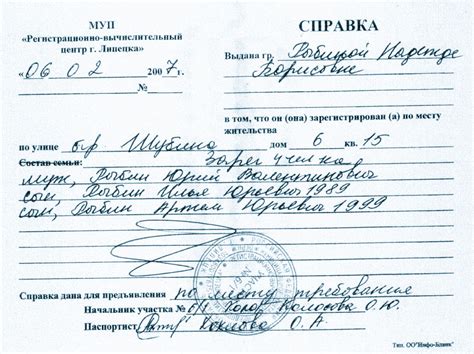 МУП
«Регистрационно-вычислительный
центр г. Липецка»
«06 02 2007 г.
№
СПРАВКА
Выдана гр. Рыбиной Надежде
Борисовне
в том, что он (она) зарегистрирован (а) по месту
жительства
по улице б-р Шубина дом 6 кв. 15
Состав семьи: Зарег 4 человека
муж, Рыбин Юрий Валентинович
сын, Рыбин Илья Юрьевич 1989
сын, Рыбин Артем Юрьевич 1999
Справка дана для предъявления по месту требования
Начальник участка Колосова О.Ю.
Паспортист О. А.
Тип. ОО"Инфо-Бланк"